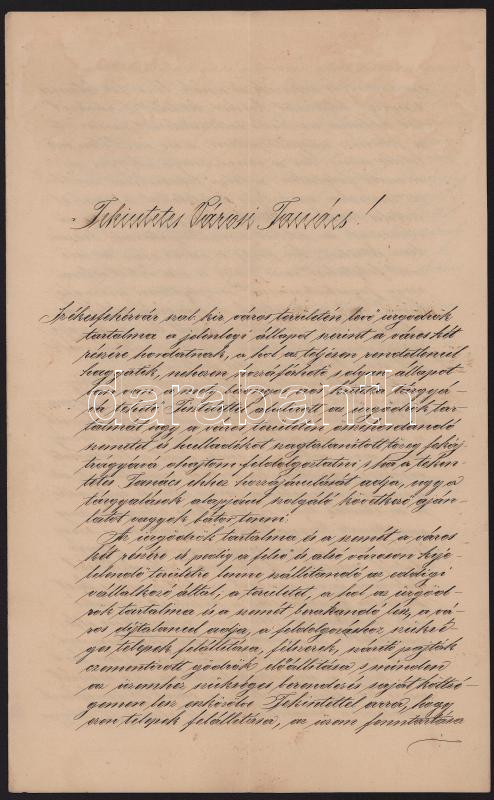 Tekintetes Városi Tanács!
Székesfehérvár szab. kir. város területén levő ürgödrök
tartalma a jelenlegi állapot szerint a város két
részére hordatnak, a hol az teljesen rendetlenül
hagyatik, nehezen hozzáférhető
tárgyá-
az ürgödrök tar-
talmát vagy a város területén
szemetet és hulladékot szagtalanított
trágyává óhajtom feldolgoztatni, s ha a tekin-
tetes Tanács ehhez hozzájárulását adja, ugy a
tárgyalások alapjául szolgáló következő aján-
latot vagyok bátor tenni:
Az ürgödrök tartalma és a szemét a város
két részére és pedig a felső és alsó városon kije-
lelendő területre lenne szállítandó az eddigi
vállalkozó által, a területet, a hol az ürgöd-
rök tartalma és a szemét lerakandó lesz, a vá-
ros díjtalanul adja, a feldolgozáshoz szüksé-
ges telepek felállítása, félszerek, szárító pajták
czementirozott gödrök előállítása s minden
az üzemhez szükséges berendezés saját költsé-
gemen lesz eszközölve. Tekintettel arra, hogy
ezen telepek felállítása, az üzem fenntartása
darabanth